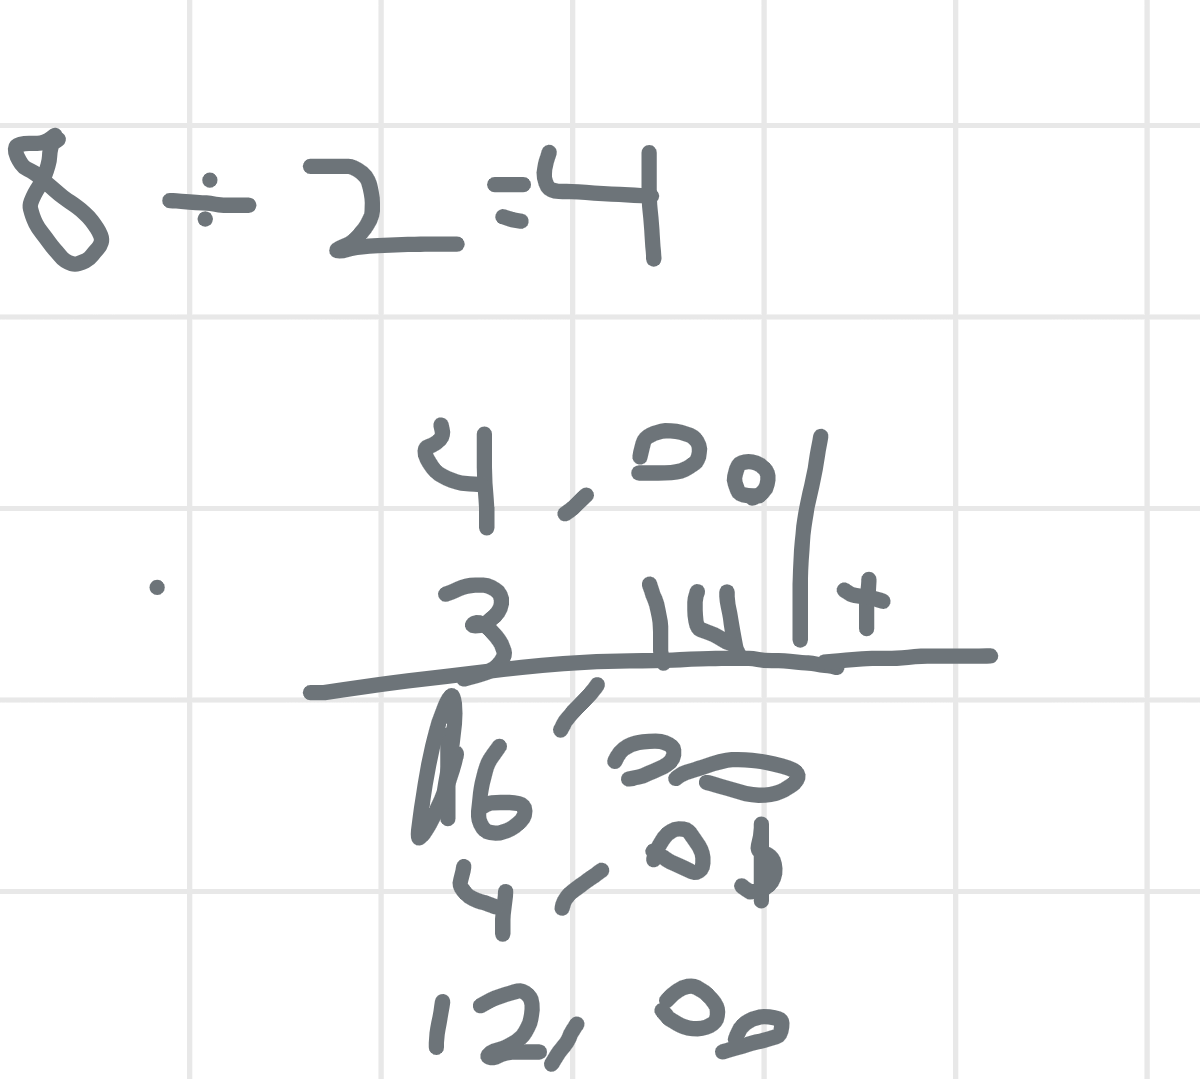 8 ÷ 2 = 4
4,00
3 14 +
16,00
4,00
12,00